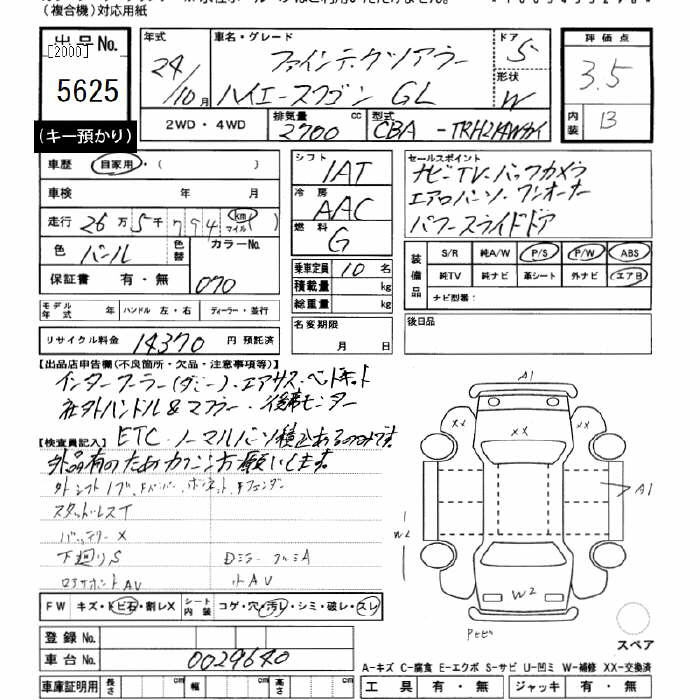 (複合機)対応用紙
出品No.
[2000]
5625
(キー預かり)
年式
24/10月
車名・グレード
ファインテックツアラー
ハイエースワゴン GL
ドア
5
形状
W
評価点
3.5
内装
B
2WD・4WD
排気量
2700 cc
型式
CBA-TRH214W改
車歴 自家用・( )
車検 年 月
走行 26万5千794 km マイル
色 パール 色替 カラーNo. 070
保証書 有・無
シフト
IAT
冷房
AAC
燃料
G
乗車定員 10 名
積載量 kg
総重量 kg
セールスポイント
ナビTV・バックカメラ
エアロバンパ・ワンオーナー
パワースライドドア
装備品
S/R 純A/W P/S P/W ABS
純TV 純ナビ 革シート 外ナビ エアB
ナビ型番:
モデル年式 年 ハンドル 左・右 ディーラー・並行
リサイクル料金 14370 円 預託済
名変期限
月 日
後日品
【出品店申告欄(不良箇所・欠品・注意事項等)】
インタークーラー(ダミー)・エアサス・ベッドキット
社外ハンドル&マフラー・後席モニター
ETC・ノーマルバンパ積込あるのみです
【検査員記入】
外品有のためカクニンお願いします
スタッドレスT
バッテリーX
下廻りS
FW キズ・ヒ石・割レX シート内装 コゲ・穴・汚レ・シミ・破レ・スレ
登録No.
車台No. 0029640
車庫証明用 長さ cm 幅 cm 高さ cm
A1
XX
XX
XX
A1
W2
W2
スペア
A-キズ C-腐食 E-エクボ S-サビ U-凹ミ W-補修 XX-交換済
工具 有・無 ジャッキ 有・無